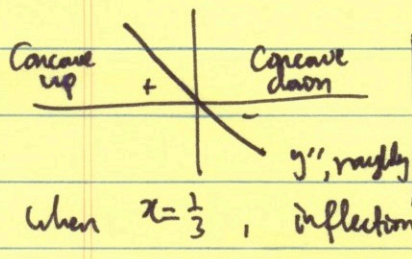 Concave up + Concave down -
y'', roughly
when x = 1/3 , inflection